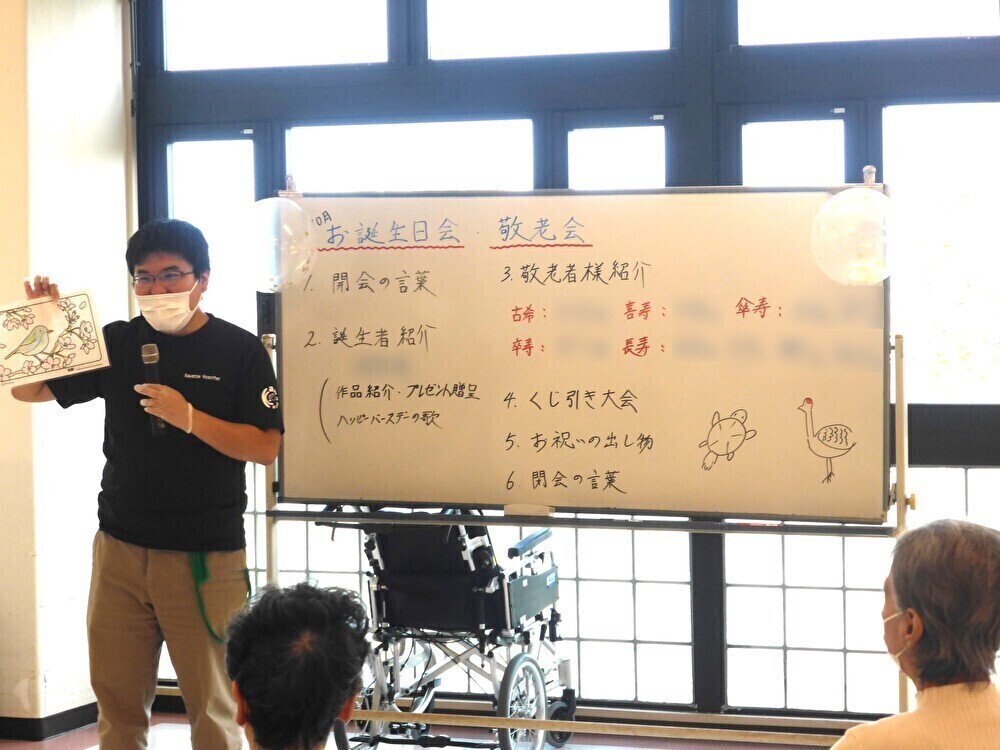 10月
お誕生日会・敬老会
1. 開会の言葉
2. 誕生者紹介
(作品紹介・プレゼント贈呈
ハッピーバースデーの歌
3. 敬老者様紹介
古希： 喜寿： 傘寿：
卒寿： 長寿：
4. くじ引き大会
5. お祝いの出し物
6. 閉会の言葉